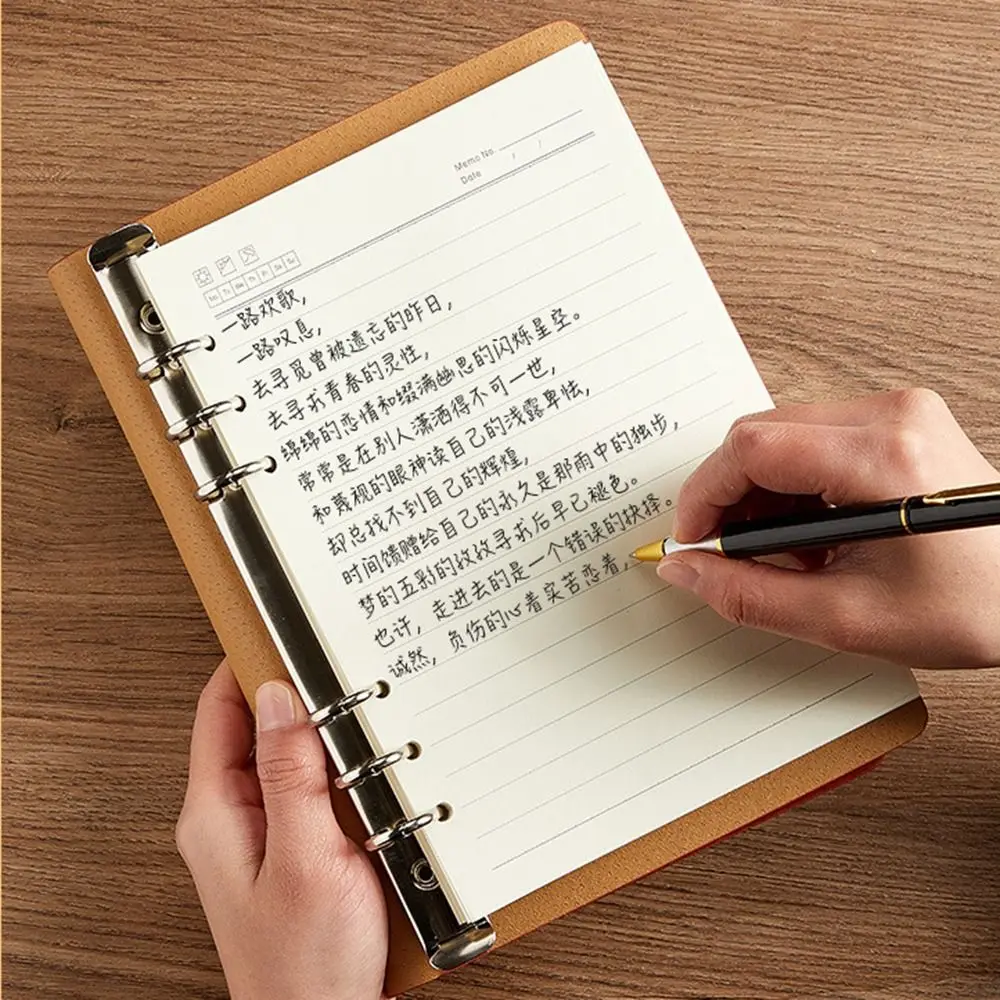 Memo No.
Date / /
Su Mo Tu We Th Fr Sa
一路欢歌,
一路叹息,
去寻觅曾被遗忘的昨日,
去寻求青春的灵性,
绵绵的恋情和缀满幽思的闪烁星空。
常常是在别人潇洒得不可一世,
和蔑视的眼神读自己的浅露卑怯,
却总找不到自己的辉煌,
时间馈赠给自己的永久是那雨中的独步,
梦的五彩的孜孜寻求后早已褪色。
也许,走进去的是一个错误的抉择。
诚然,负伤的心着实苦恋着,